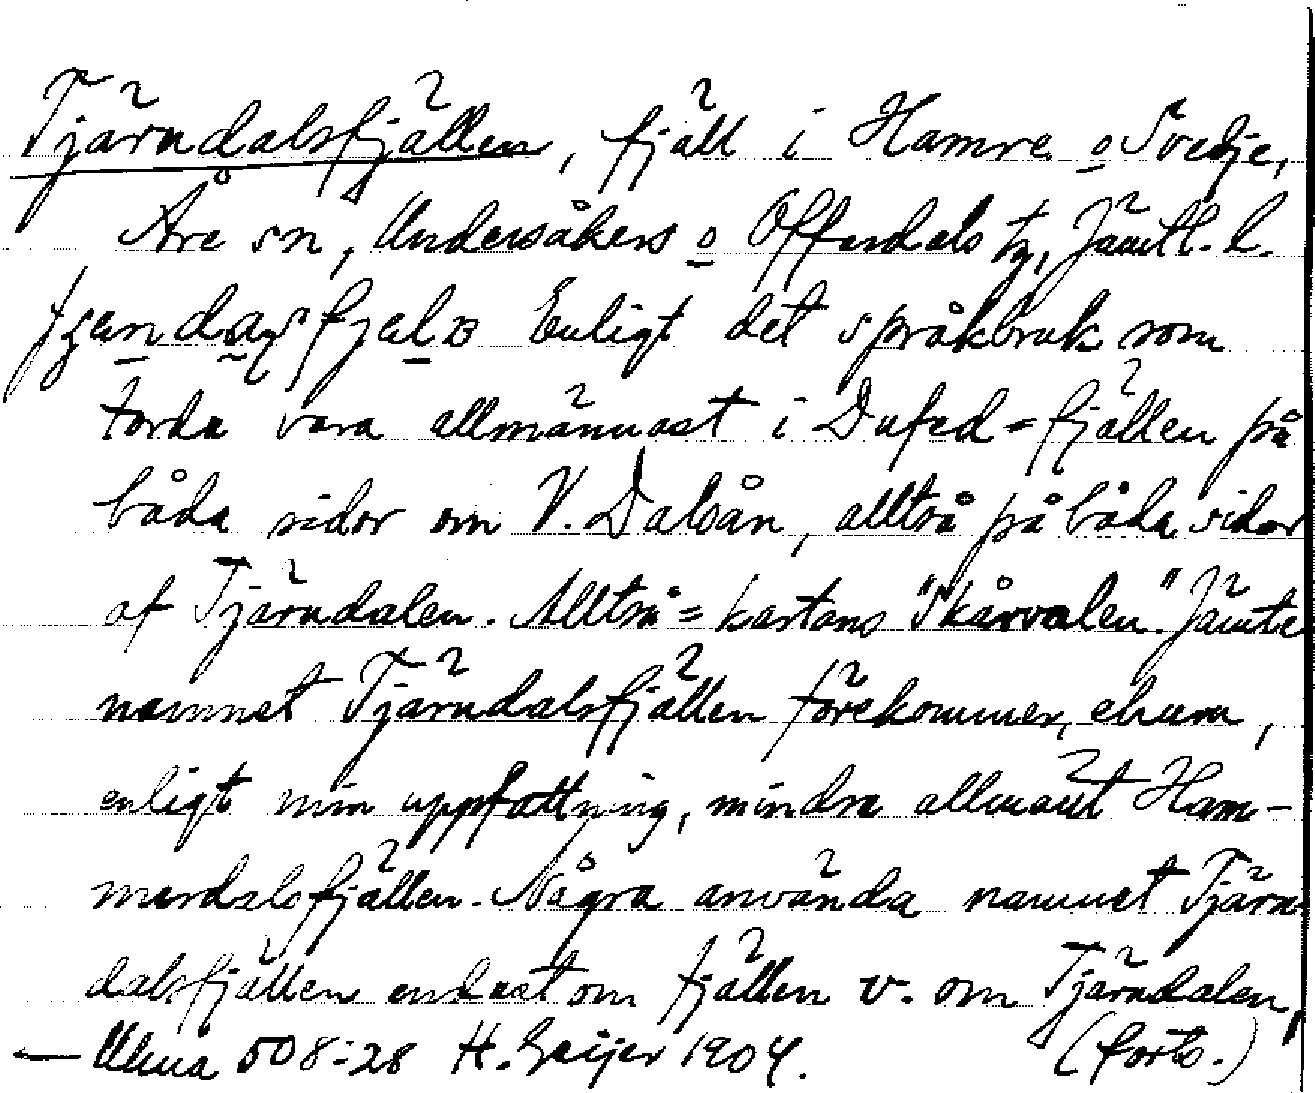 Tjärndalsfjällen, fjäll i Hamre o Svedje,
Åre sn, Undersåkers o Offerdals tg, Jämtl. l.
Enligt det språkbruk som
torde vara allmännast i Dufed-fjällen på
båda sidor om V. Dalsån, alltså på båda sidor
af Tjärndalen. Alltså = kartans "Skårvalen". Jämte
namnet Tjärndalsfjällen förekommer, ehuru,
enligt min uppfattning, mindre allmänt Ham-
mardalsfjällen. Några använda namnet Tjärn-
dalsfjällen endast om fjällen v. om Tjärndalen,
— Ulma 508:28 H. Geijer 1904. (forts.)